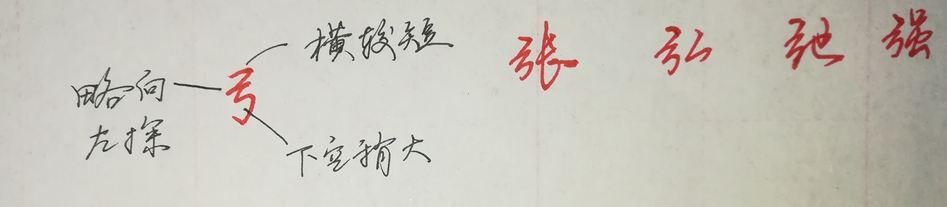 横较短
略向
左探
弓
下空稍大
张 弘 弛 强